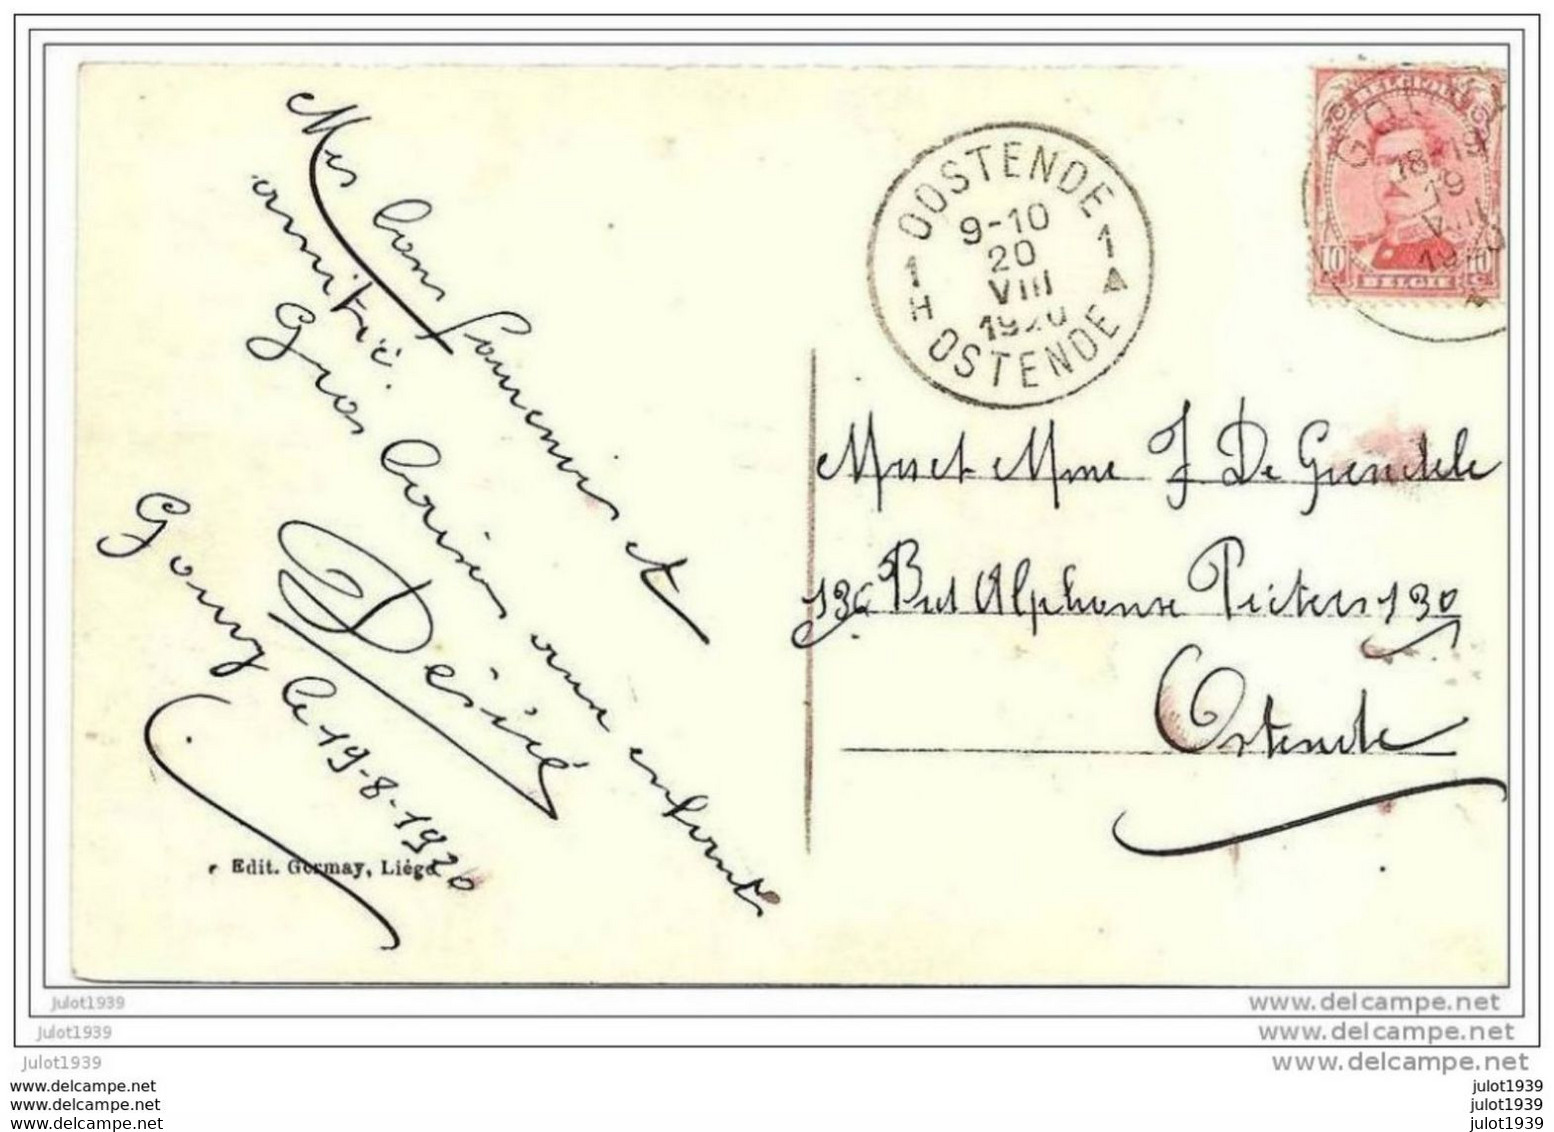 Mes bons souvenirs et
amitié.
Gros baisers aux enfants
Désiré
Gouvy le 19-8-1920
Edit. Germay, Liége
OOSTENDE
1 1
9-10
20
VIII
1920
H
OSTENDE
BELGIQUE
GOUVY
18-19
19
VIII
1920
10 10
BELGIE
Mr et Mme J De Grendele
130 Bvd Alphonse Pieters 130
Ostende
Julot1939
www.delcampe.net
Julot1939
www.delcampe.net
Julot1939
www.delcampe.net
www.delcampe.net
www.delcampe.net
www.delcampe.net
julot1939
julot1939
julot1939